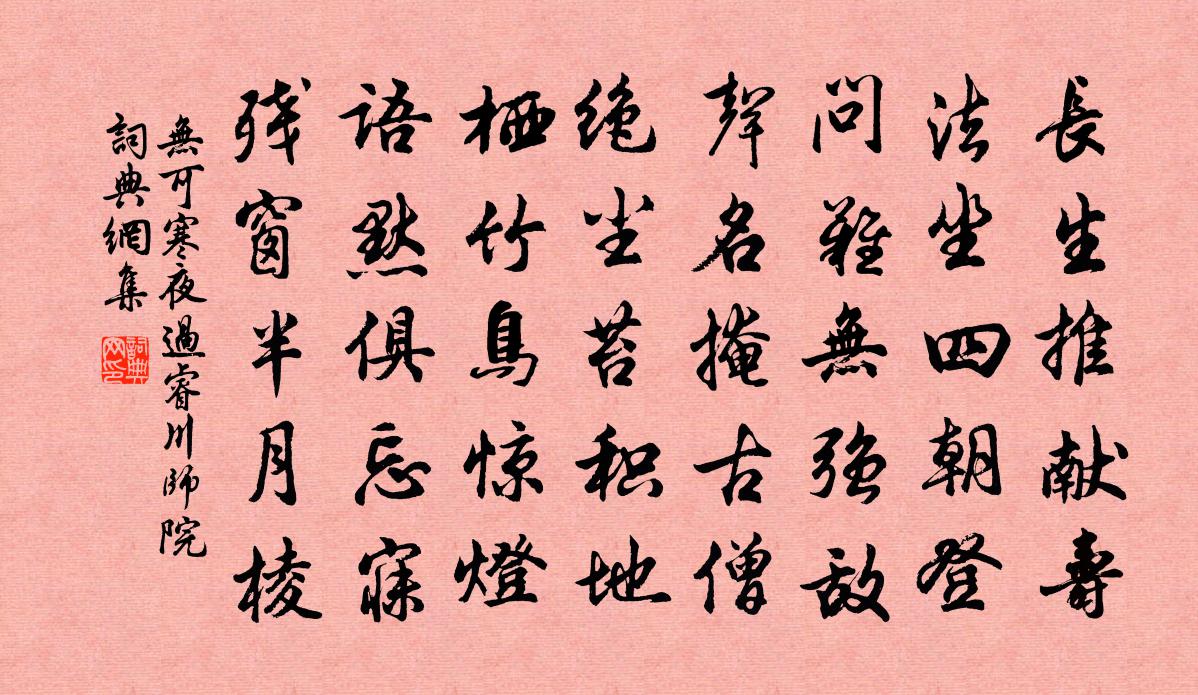 長生推献壽
法坐四朝登
問難無強敌
聲名掩古僧
绝尘苔积地
栖竹鳥惊燈
語默俱忘寐
残窗半月棱
無可寒夜過睿川師院
詞典網集
詞典网印